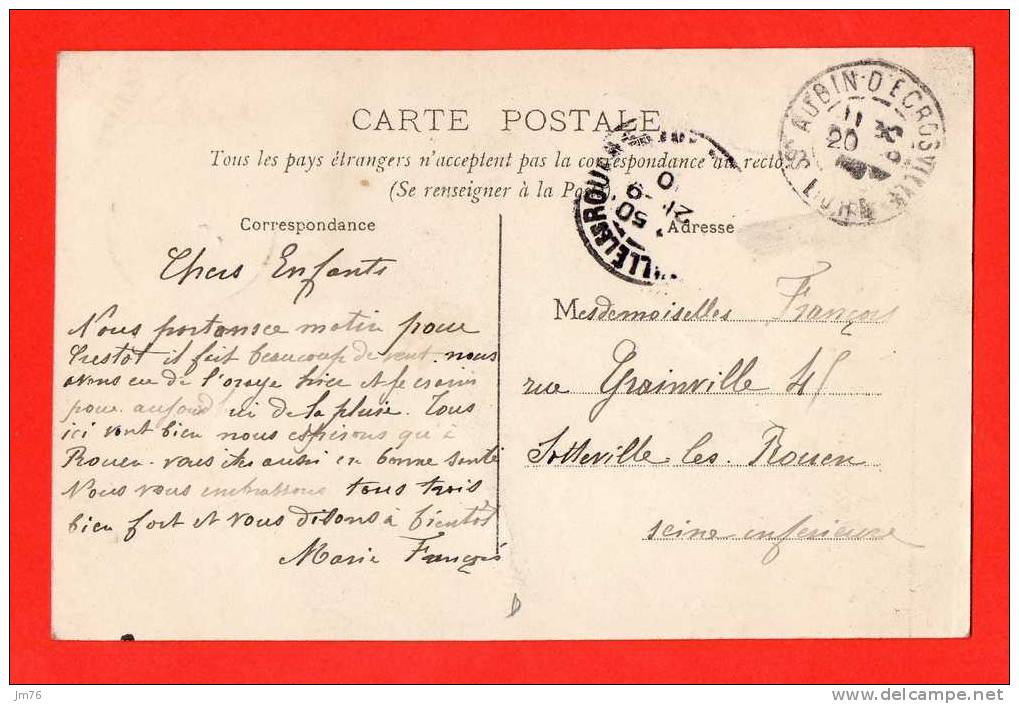 CARTE POSTALE
Tous les pays étrangers n'acceptent pas la correspondance au recto
(Se renseigner à la Poste)
Correspondance
Chers Enfants
Nous partons ce matin pour
Crestot il fait beaucoup de vent nous
avons eu de l'orage hier et je crains
pour aujourd'hui de la pluie. Tous
ici vont bien nous espérons qu'à
Rouen vous êtes aussi en bonne santé
Nous vous embrassons tous trois
bien fort et vous disons à bientôt
Marie François
Adresse
Mesdemoiselles François
rue Grainville 45
Sotteville les Rouen
seine inférieure
ST AUBIN-D'ECROSVILLE
11
20
LLE LES ROUEN
50
21 -9
10
jm76
www.delcampe.net